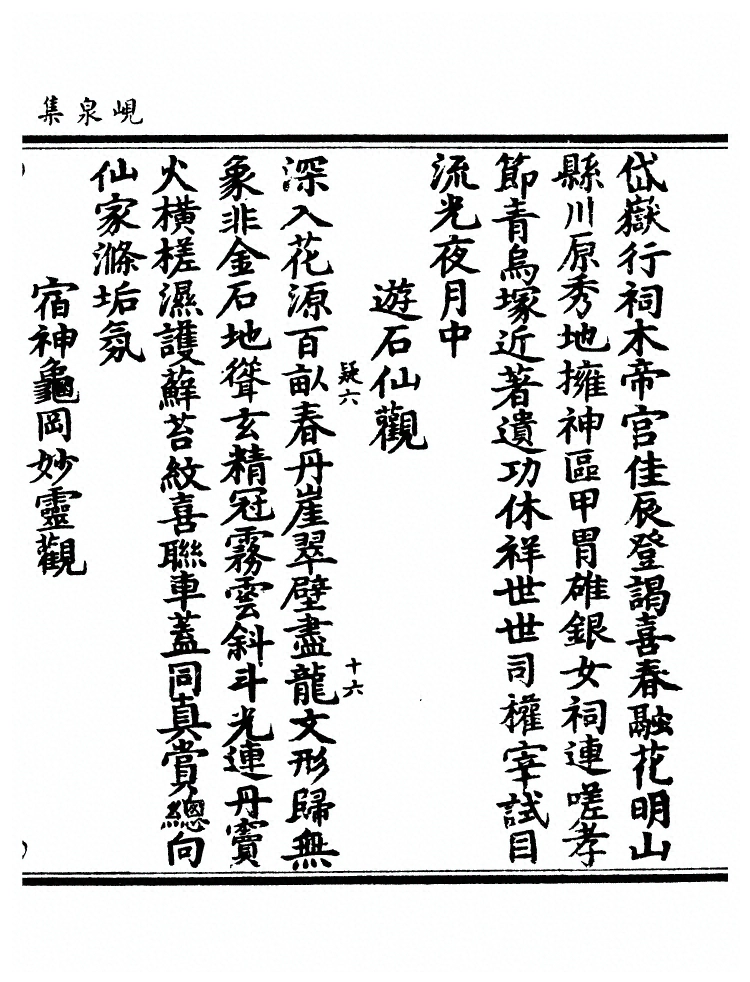 峴泉集
岱嶽行祠木帝宮佳辰登謁喜春融花明山
縣川原秀地擁神區甲冑雄銀女祠連嗟孝
節青烏塚近著遺功休祥世世司權宰試目
流光夜月中
遊石仙觀
疑六
十六
深入花源百畝春丹崖翠壁盡龍文形歸無
象非金石地聳玄精冠霧雲斜斗光連丹竇
火橫槎濕護蘚苔紋喜聯車蓋同真賞總向
仙家滌垢氛
宿神龜岡妙靈觀